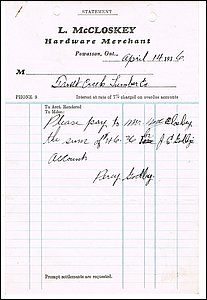 STATEMENT
L. McCLOSKEY
Hardware Merchant
Powassan, Ont., April 14
M
Trout Creek Lumber Co
PHONE 8 Interest at rate of 7% charged on overdue accounts
To Acct. Rendered
Please pay to Mr. McCloskey
the sum of 46.76 J E Godby
account
Percy Godby
Prompt settlements are requested.